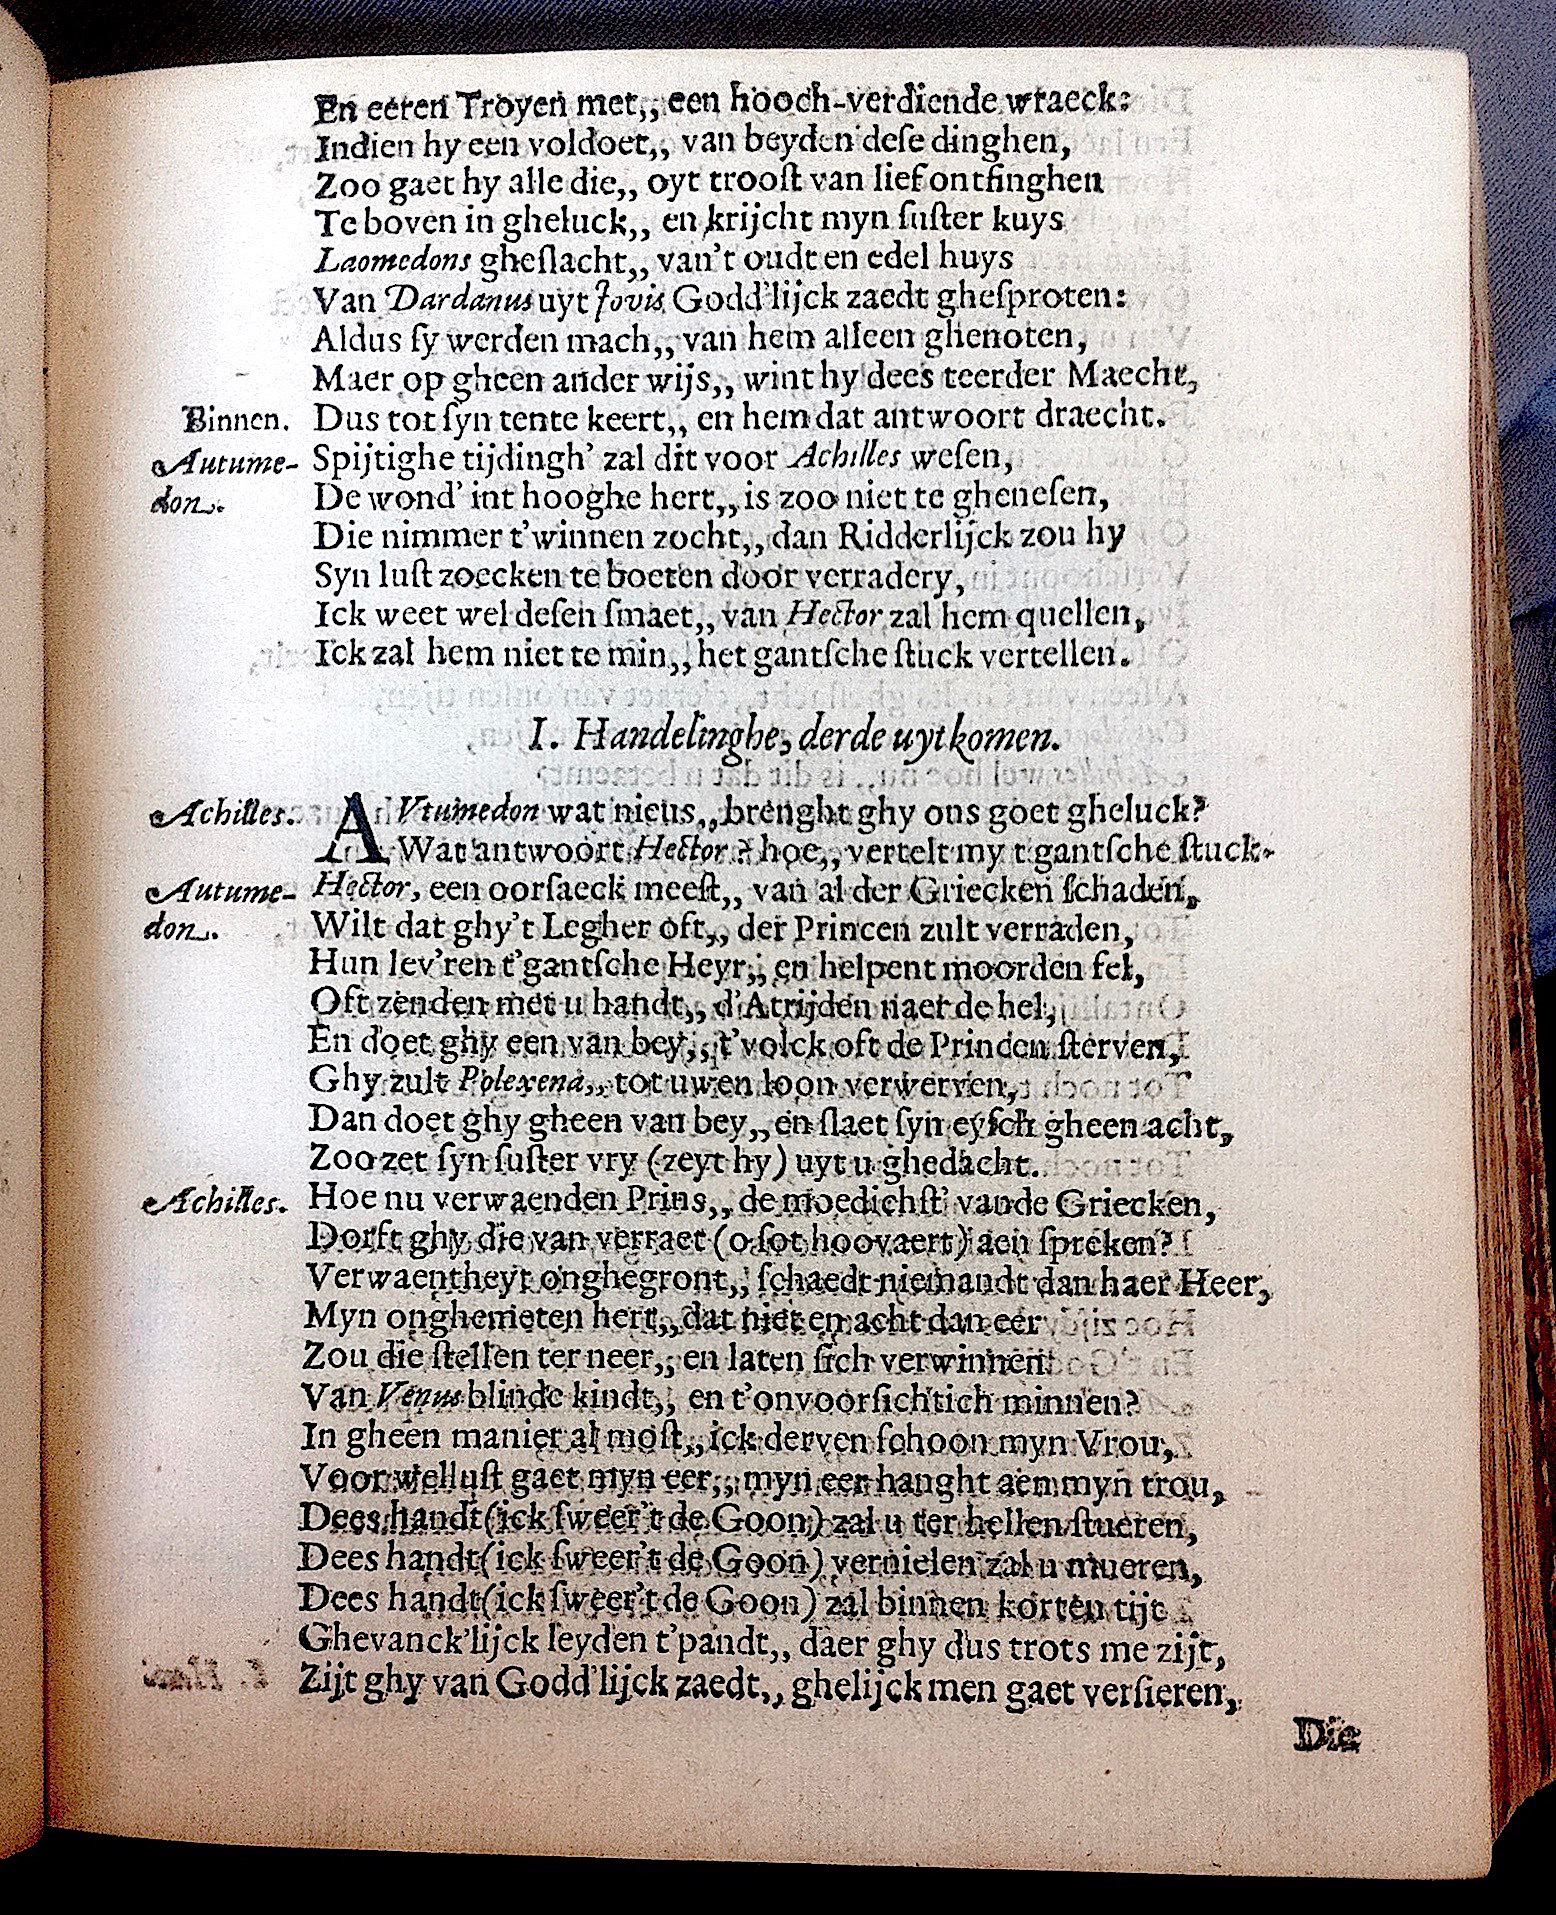 En eeren Troyen met,, een hooch-verdiende wraeck:
Indien hy een voldoet,, van beyden dese dinghen,
Zoo gaet hy alle die,, oyt troost van lief ontfinghen
Te boven in gheluck,, en krijcht myn suster kuys
Laomedons gheslacht,, van't oudt en edel huys
Van Dardanus uyt Jovis Godd'lijck zaedt ghesproten:
Aldus sy werden mach,, van hem alleen ghenoten,
Maer op gheen ander wijs,, wint hy dees teerder Maecht,
Binnen. Dus tot syn tente keert,, en hem dat antwoort draecht.
Autume- Spijtighe tijdingh' zal dit voor Achilles wesen,
don. De wond' int hooghe hert,, is zoo niet te ghenesen,
Die nimmer t'winnen zocht,, dan Ridderlijck zou hy
Syn lust zoecken te boeten door verradery,
Ick weet wel desen smaet,, van Hector zal hem quellen,
Ick zal hem niet te min,, het gantsche stuck vertellen.
I. Handelinghe, derde uytkomen.
Achilles. AVtumedon wat nieus,, brenght ghy ons goet gheluck?
Wat antwoort Hector? hoe,, vertelt my t'gantsche stuck.
Autume- Hector, een oorsaeck meest,, van al der Griecken schaden,
don. Wilt dat ghy't Legher oft,, der Princen zult verraden,
Hun lev'ren t'gantsche Heyr,, en helpent moorden fel,
Oft zenden met u handt,, d'Atrijden naer de hel,
En doet ghy een van bey,, t'volck oft de Princen sterven,
Ghy zult Polexena,, tot uwen loon verwerven,
Dan doet ghy gheen van bey,, en slaet syn eysch gheen acht,
Zoo zet syn suster vry (zeyt hy) uyt u ghedacht.
Achilles. Hoe nu verwaenden Prins,, de moedichst' vande Griecken,
Dorft ghy die van verraet (o sot hoovaert) aen spreken?
Verwaentheyt onghegront,, schaedt niemandt dan haer Heer,
Myn onghemeten hert,, dat niet en acht dan eer
Zou die stellen ter neer,, en laten sich verwinnen
Van Venus blinde kindt,, en t'onvoorsichtich minnen?
In gheen manier al most,, ick derven schoon myn Vrou,
Voor wellust gaet myn eer,, myn eer hanght aen myn trou,
Dees handt (ick sweer't de Goon) zal u ter hellen stueren,
Dees handt (ick sweer't de Goon) vernielen zal u mueren,
Dees handt (ick sweer't de Goon) zal binnen korten tijt
Ghevanck'lijck leyden t'pandt,, daer ghy dus trots me zijt,
Zijt ghy van Godd'lijck zaedt,, ghelijck men gaet versieren,
Die